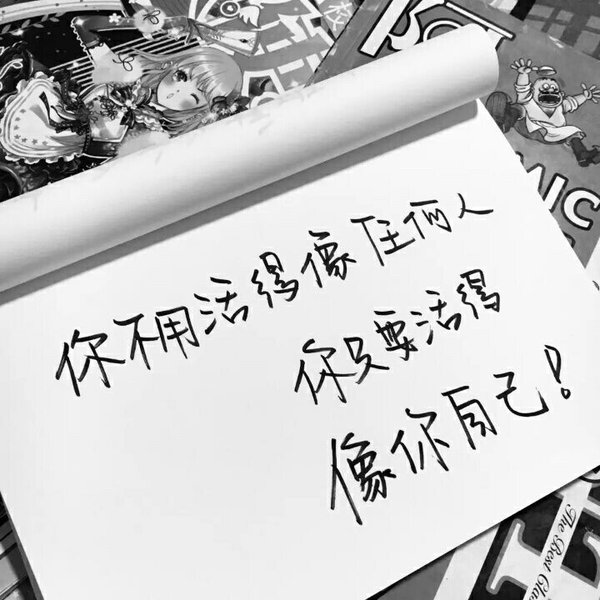 你不用活得像任何人
你只要活得
像你自己!
MIC
The Best Cla